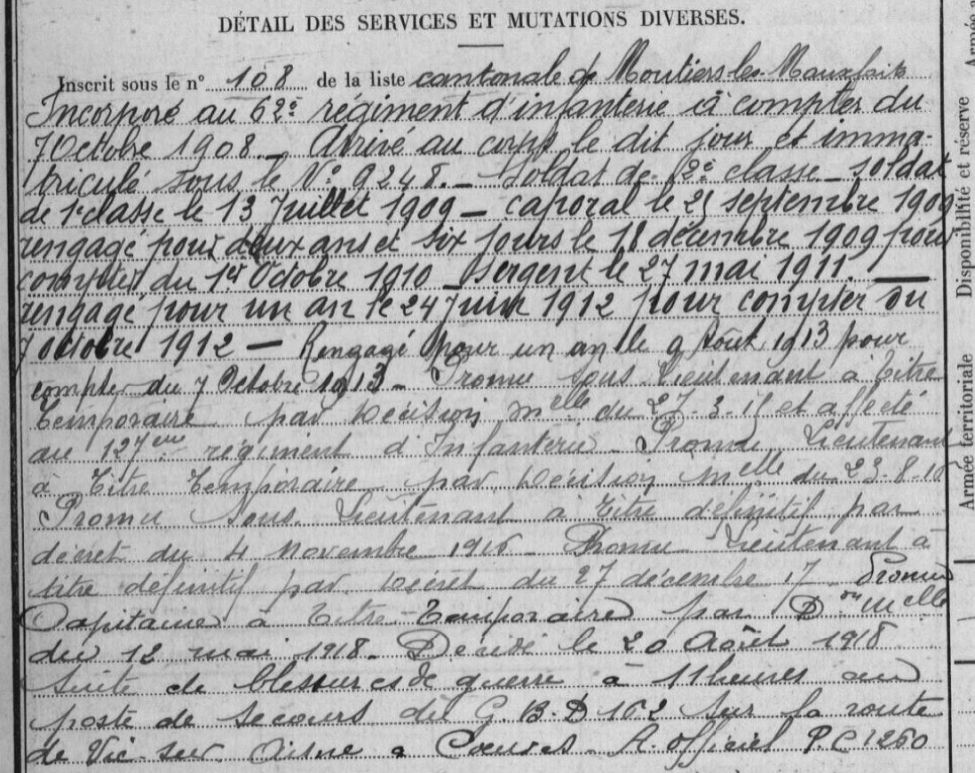 DÉTAIL DES SERVICES ET MUTATIONS DIVERSES.
Inscrit sous le n° 108 de la liste cantonale de Moutiers les Mauxfaits
Incorporé au 62e régiment d'infanterie à compter du
7 Octobre 1908. – Arrivé au corps le dit jour et imma-
triculé sous le N° 9248. – Soldat de 2e classe – soldat
de 1e classe le 13 Juillet 1909 – caporal le 25 septembre 1909
rengagé pour deux ans et six jours le 18 décembre 1909 pour
compter du 1er Octobre 1910 – Sergent le 27 mai 1911. –
rengagé pour un an le 24 juin 1912 pour compter du
7 octobre 1912 – Rengagé pour un an le 9 Août 1913 pour
compter du 7 Octobre 1913 – Promu sous-lieutenant à titre
temporaire par décision melle du 27-3-15 et affecté
au 127eme régiment d'Infanterie – Promu Lieutenant
à titre temporaire par décision melle du 23-8-16
Promu Sous-Lieutenant à titre définitif par
décret du 4 Novembre 1916 – Promu Lieutenant à
titre définitif par décret du 27 décembre 17. Promu
Capitaine à titre temporaire par Don melle
du 12 mai 1918. Décédé le 20 Août 1918
suite de blessures de guerre à 11 heures au
poste de secours du G.B.D 162 sur la route
de Vic sur Aisne à Coeuvres – A. officiel P.C 1260
Disponibilité et réserve
Armée territoriale